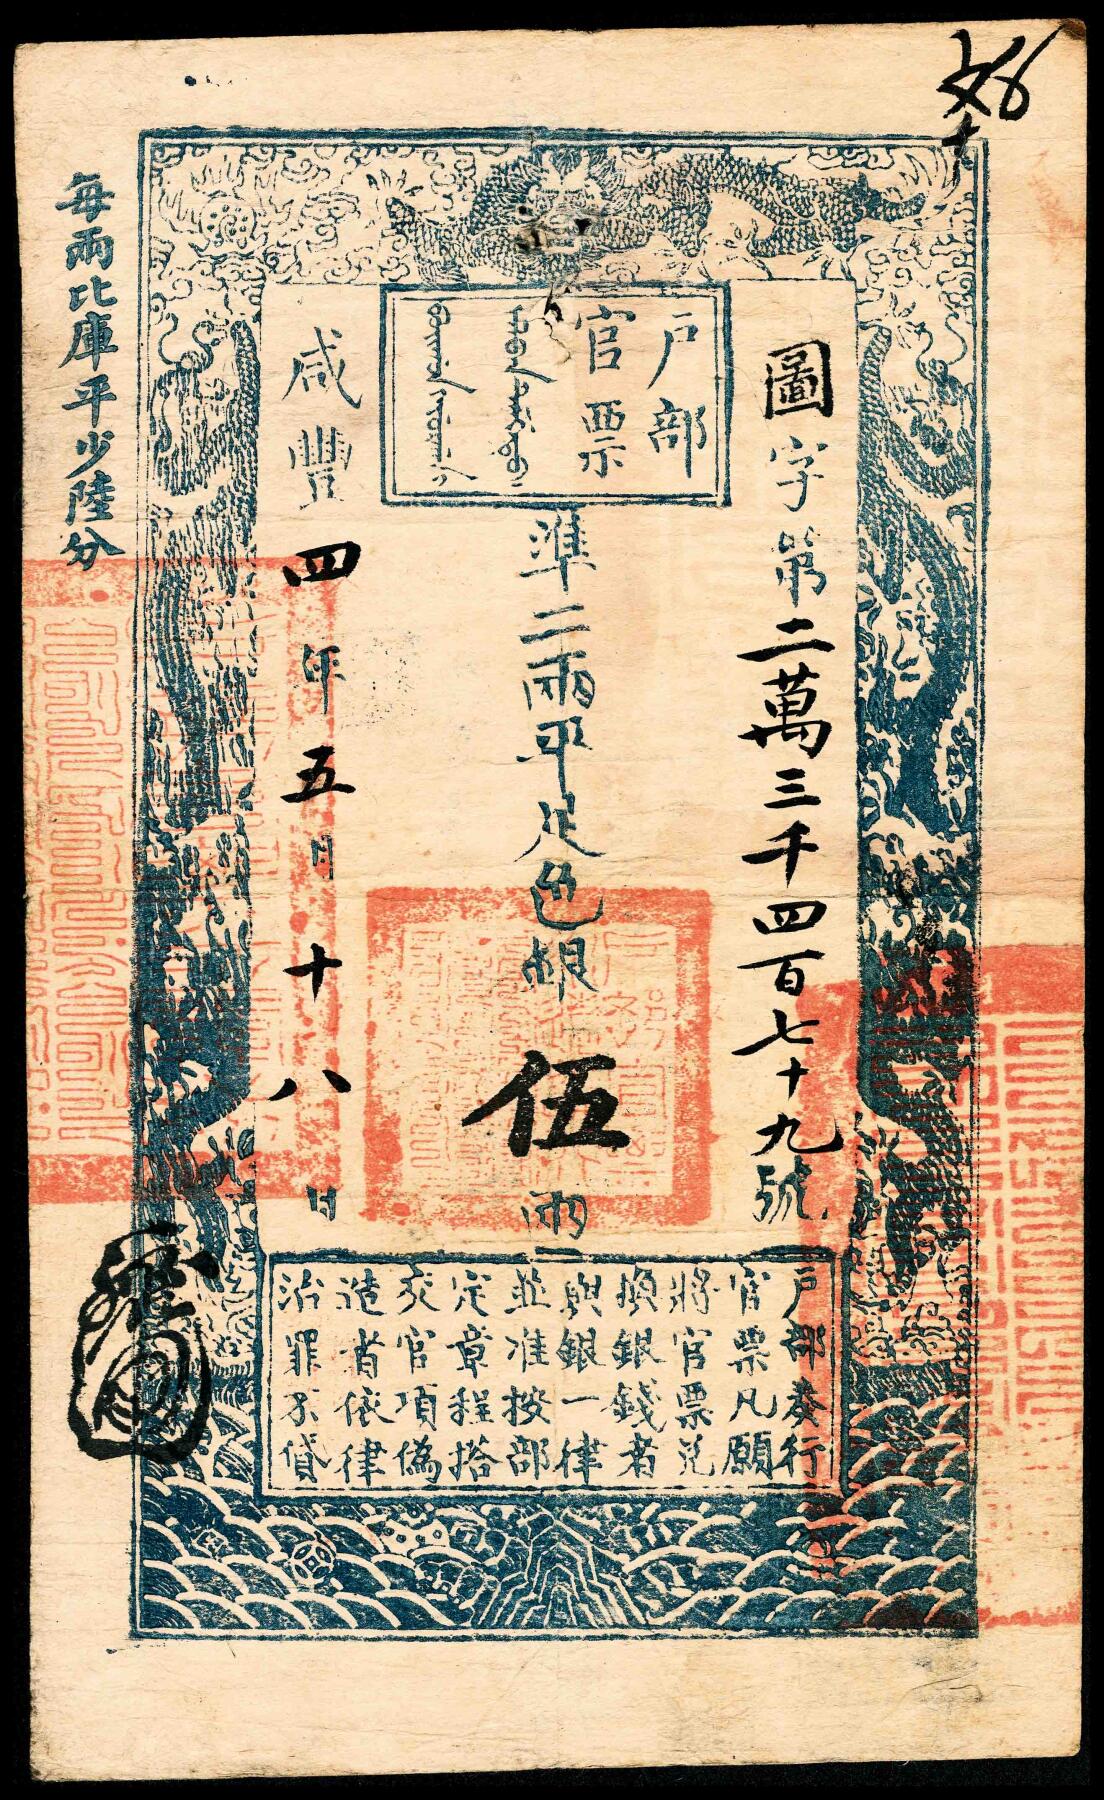 戶部
官票
圖字第二萬三千四百七十九號
準二兩平足色銀伍兩
咸豐四年五月十八日
每兩比庫平少陸分
戶部奏行
官票凡願
將官票兌
換銀錢者
與銀一律
並准按部
定章程搭
交官項偽
造者依律
治罪不貸